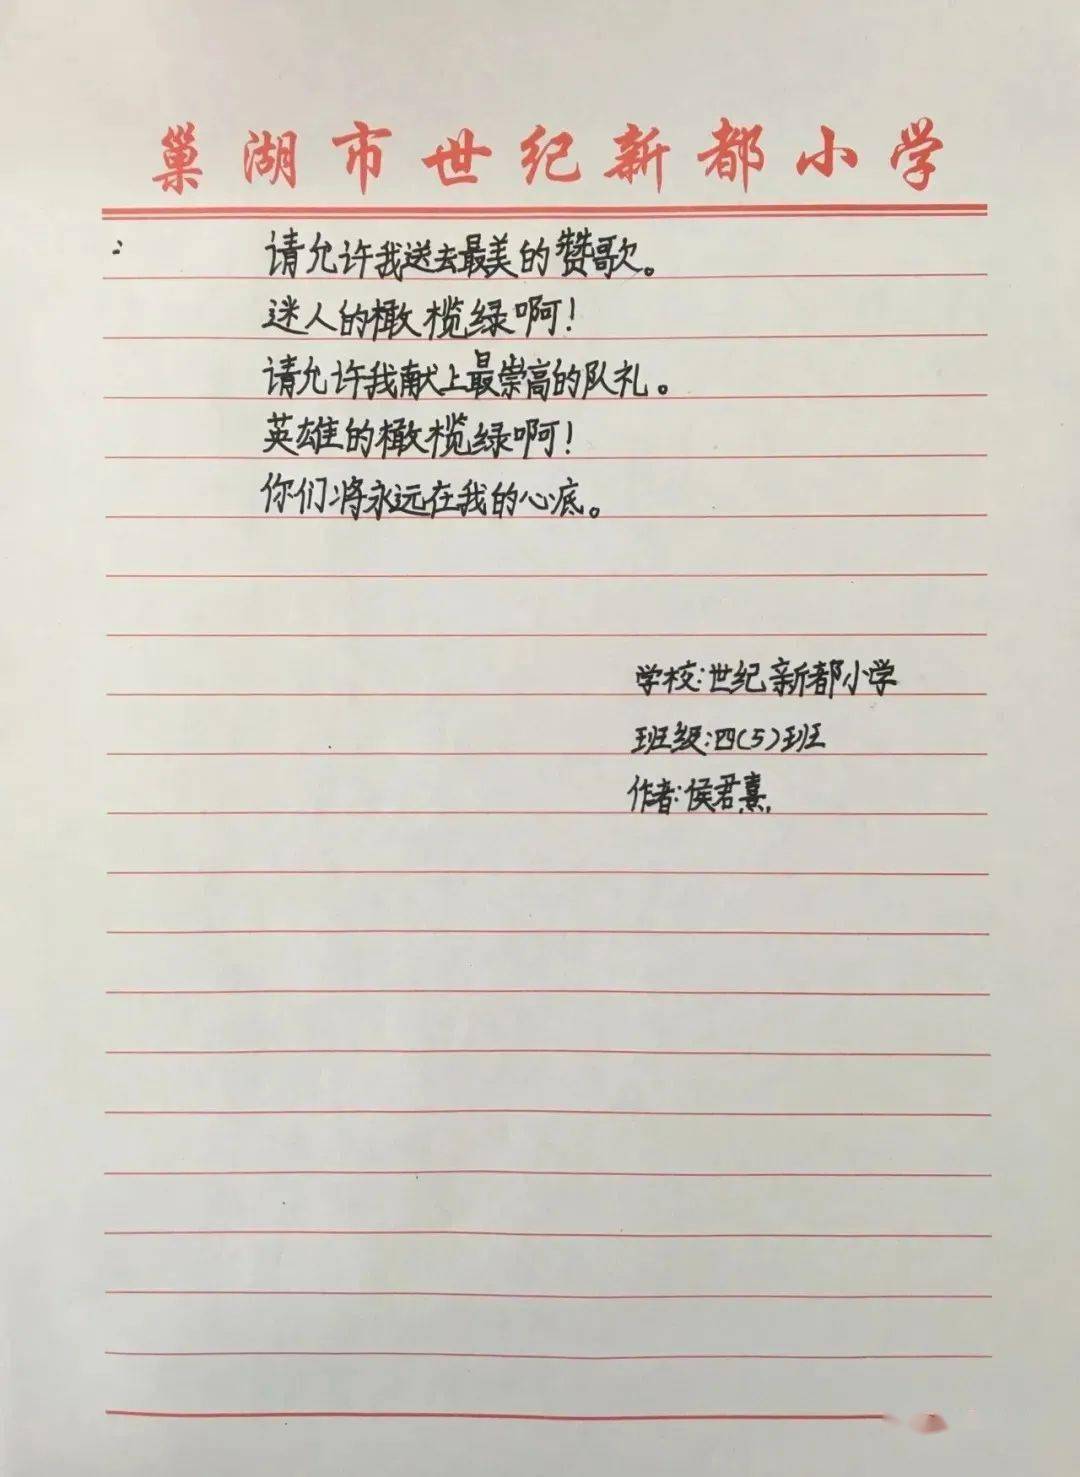 巢湖市世纪新都小学
请允许我送去最美的赞歌。
迷人的橄榄绿啊！
请允许我献上最崇高的队礼。
英雄的橄榄绿啊！
你们将永远在我的心底。
学校：世纪新都小学
班级：四(5)班
作者：侯君熹